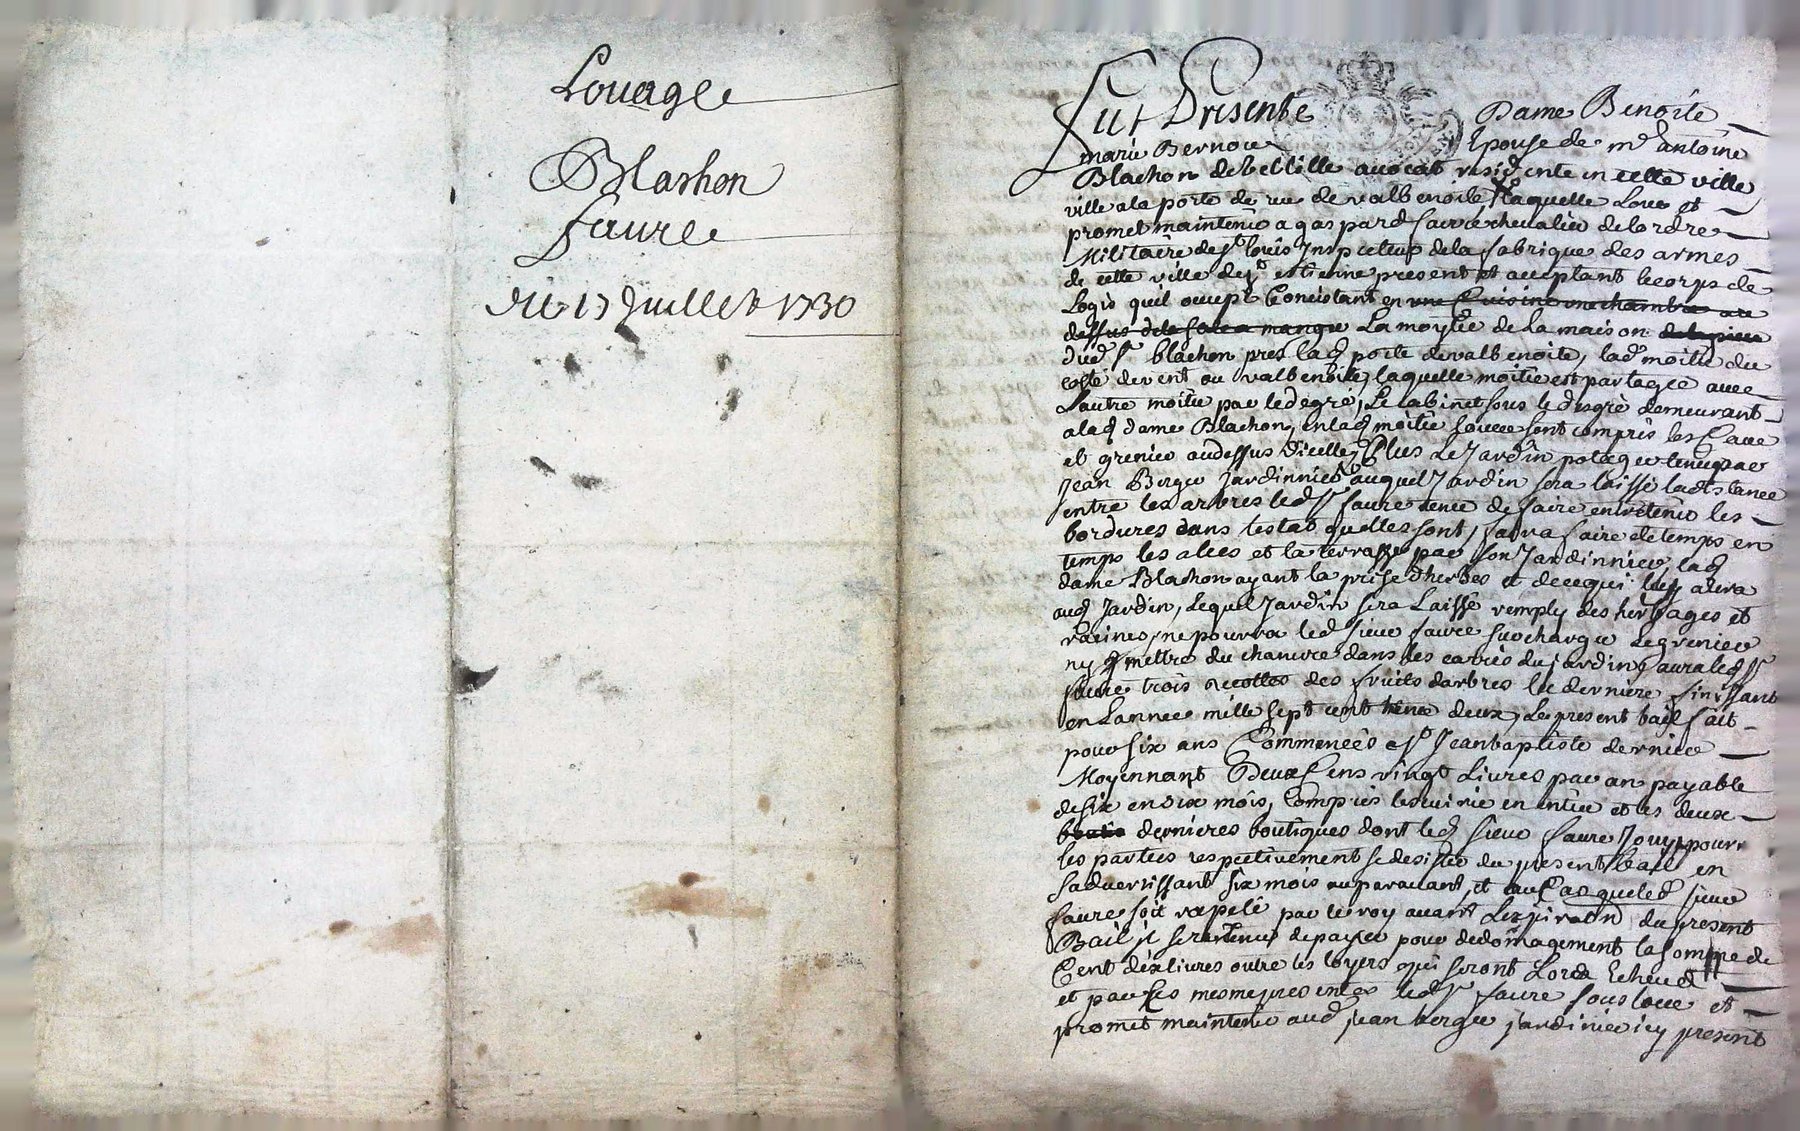 Louage
Blachon
faure
du 17 Juillet 1730
Fut Presente Dame Benoite
marie Bernou Epouse de mr antoine
Blachon de avocat residente en cette ville
ville a la porte de rue de valbenoite laquelle Loue et
promet maintenir a gaspard faure chevalier de lordre
Militaire de st Louis Inspecteur de la fabrique des armes
de cette ville de st estienne present et acceptant le corps de
Logis quil occupe Consistant en une Cuisine une chambre au
dessus de la sale a mange La moytie de la maison
dud sr blachon pres lad porte de valbenoite, lad moitie du
costé de vent ou valbenoite, laquelle moitie est partagee avec
Lautre moitie par le degré, Le cabinet sous le degré demeurant
a lad dame Blachon, En lad moitie louee sont compris les Cave
et grenier au dessus dicelle, Plus Le Jardin potager tenu par
Jean Berger Jardinnier auquel Jardin sera laissé la distance
entre les arbres led sr faure tenu de faire entretenir les
bordures dans lestat quelles sont, faira faire de temps en
temps les alees et la terrasse par son Jardinnier, lad
dame Blachon ayant la prise dherbes et de ce qui luy
aud Jardin, Lequel Jardin sera Laissé remply des herbages et
racines, ne pourra led sieur faure surcharger Le grenier
ny mettre du chanvre dans les carrés du jardin, aura led sr
faure trois recoltes des fruits darbres la derniere finissant
en Lannee mille sept cent trente deux, Le present bail fait
pour six ans Commencés a st Jean baptiste dernier
Moyennant Deux Cens vingt Livres par an payable
de six en six mois, Compris lescuirie en entier et les deux
dernieres boutiques dont led sieur faure Jouy, pourr
les parties respectivement se desister du present bail en
sadvertissant six mois auparavant, et au Cas que led sieur
faure soit rapelé par le roy avant Lexpiraon du present
Bail il sera tenu de payer pour dedomagement la somme de
Cent dix livres outre les loyers qui seront Lors Echeu
et par ses mesme presentes led sr faure sous loue et
promet maintenir aud jean berger jardinier icy present